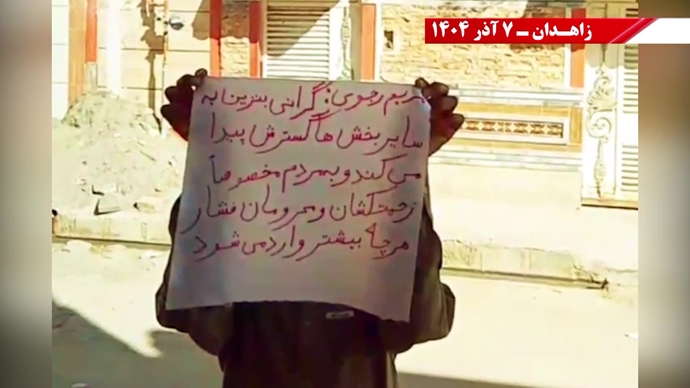 زاهـدان ـ ۷ آذر ۱۴۰۴
مریم رجوی: گرانی بنزین به
سایر بخش ها گسترش پیدا
می کند و بمردم مخصوصاً
زحمتکشان و محرومان فشار
هرچه بیشتر وارد می شود